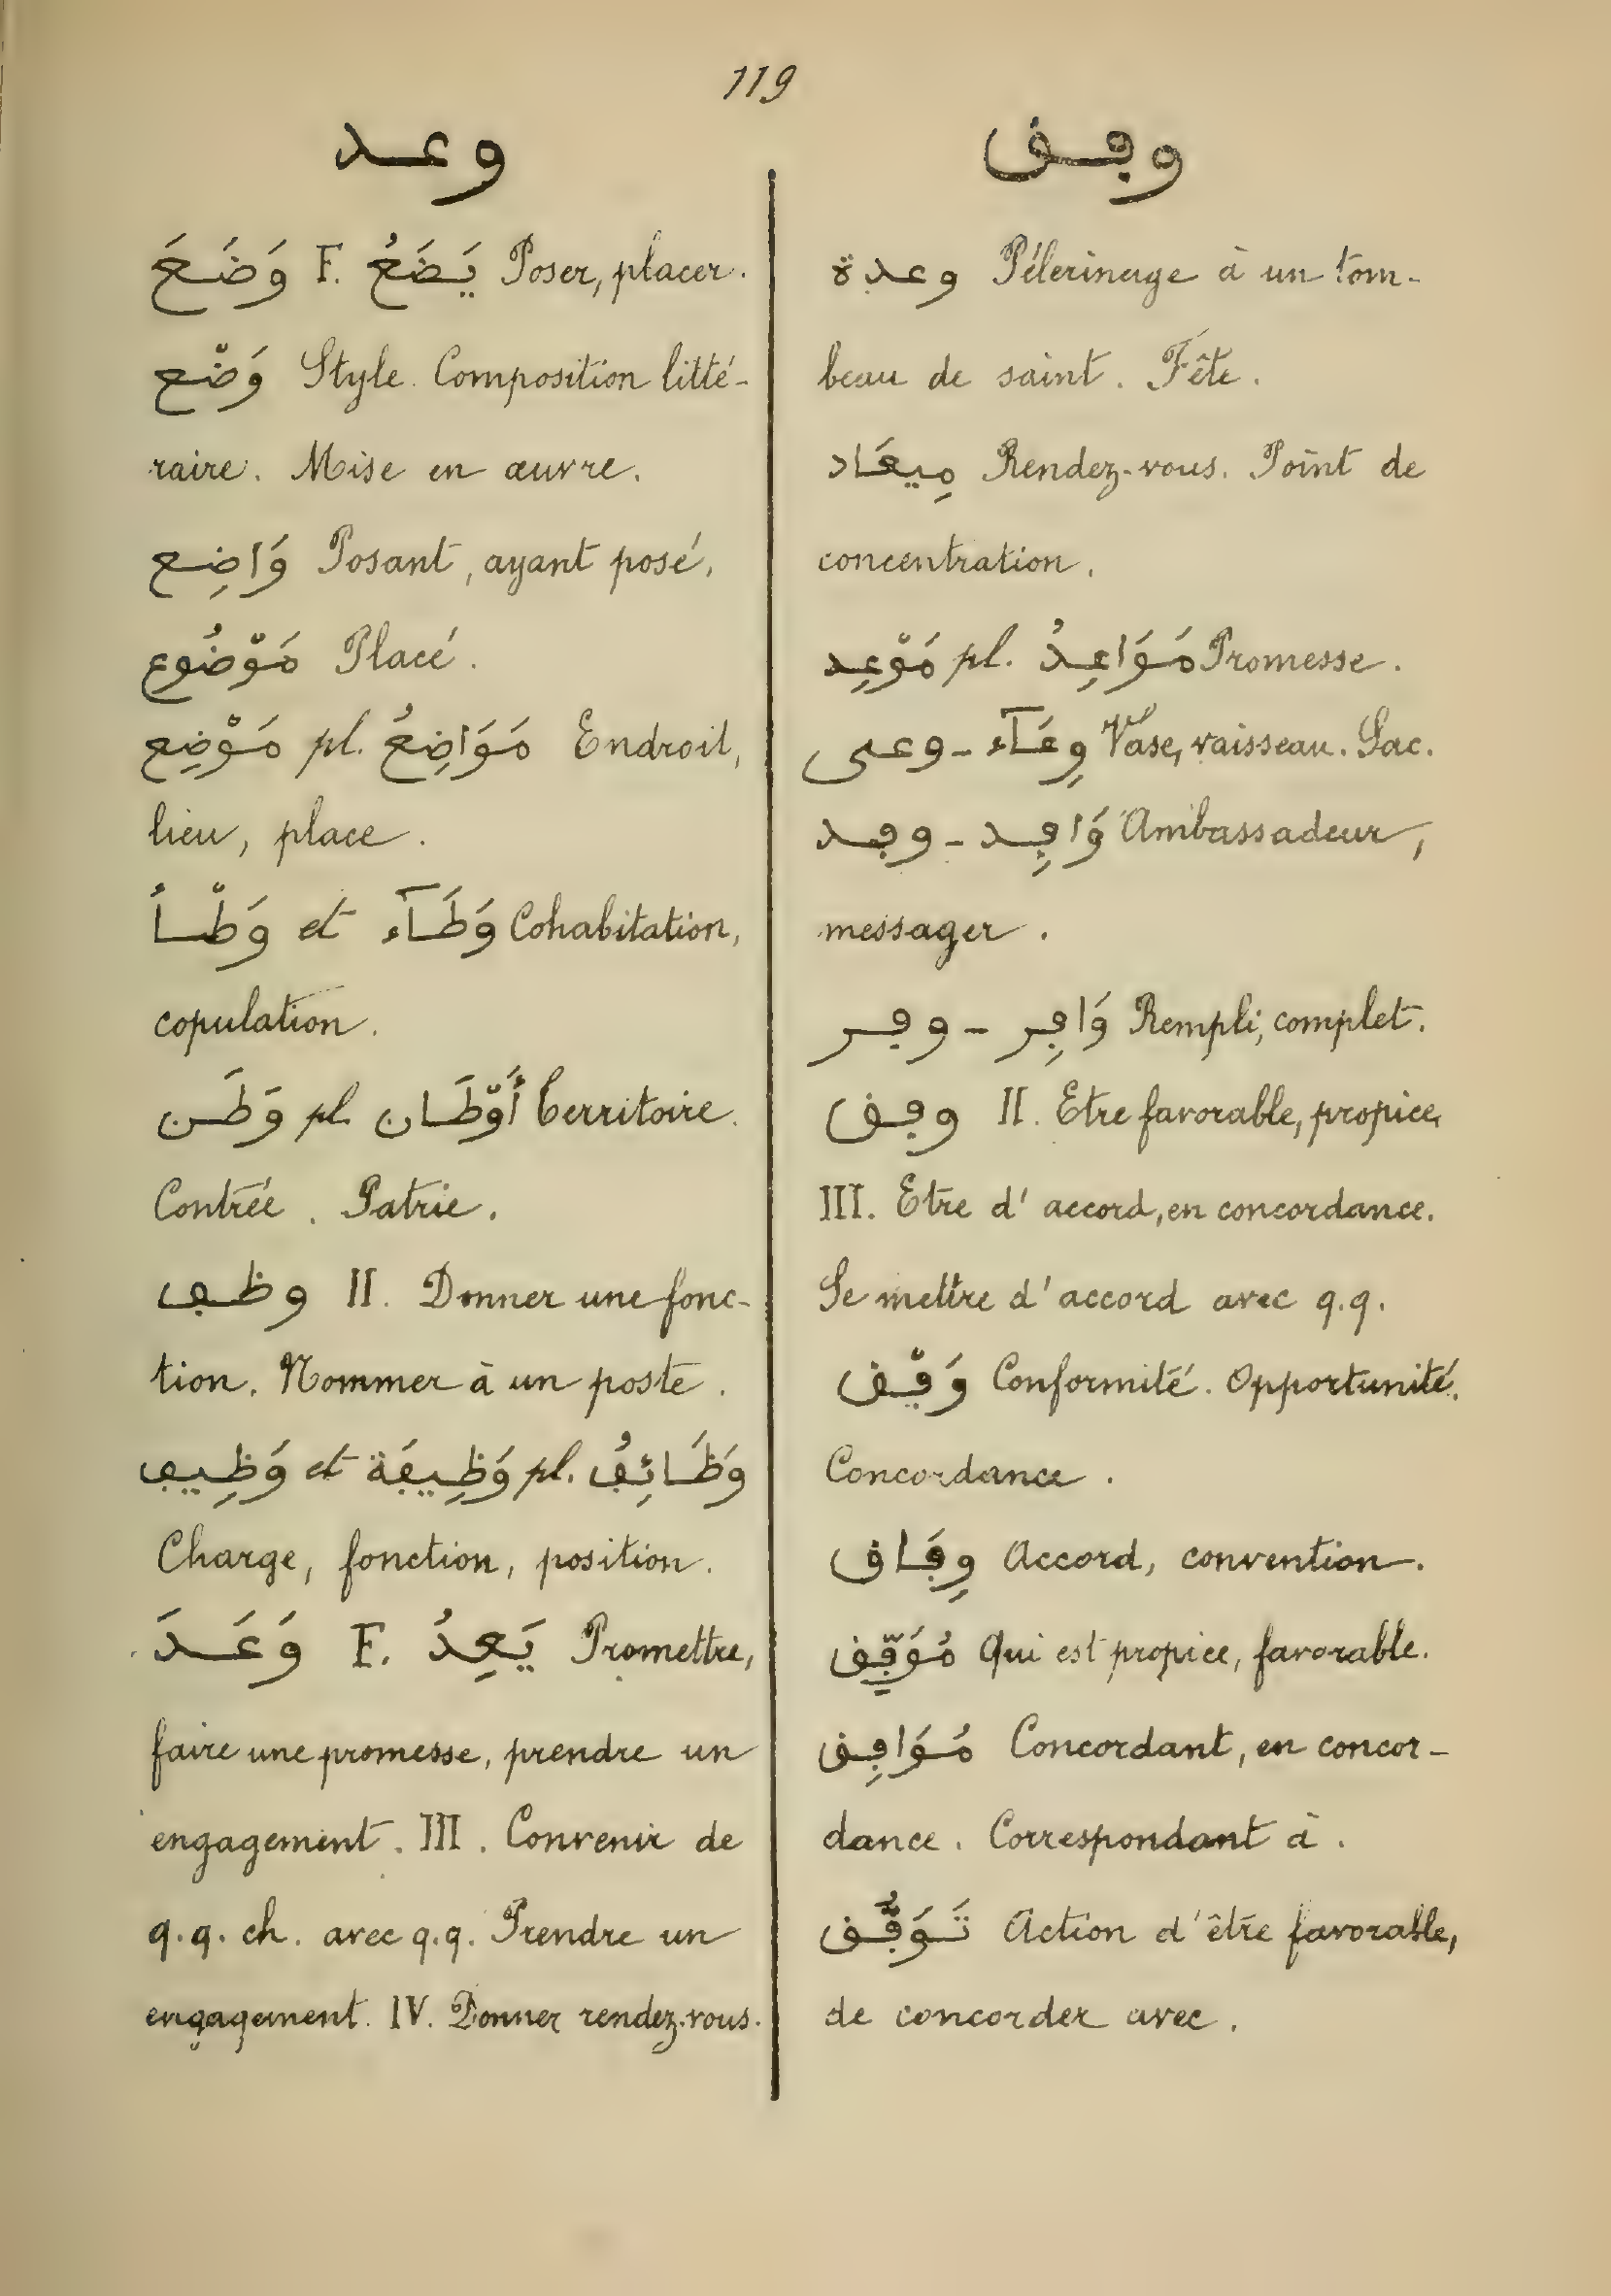 119
وعد
وَضَعَ F. يَضَعُ Poser, placer.
وَضْع Style. Composition litté-
raire. Mise en œuvre.
وَاضِع Posant, ayant posé.
مَوْضُوع Placé.
مَوْضِع pl. مَوَاضِعُ Endroit,
lieu, place.
وَطْأ et وَطَآء Cohabitation,
copulation.
وَطَن pl. أَوْطَان Territoire.
Contrée. Patrie.
وظڡ II. Donner une fonc-
tion. Nommer à un poste.
وَظِيڡ et وَظِيڢَة pl. وَظَائِڡُ
Charge, fonction, position.
وَعَدَ F. يَعِدُ Promettre,
faire une promesse, prendre un
engagement. III. Convenir de
q.q. ch. avec q.q. Prendre un
engagement. IV. Donner rendez-vous.
وڢڧ
وعدة Pélerinage à un tom-
beau de saint. Fête.
مِيعَاد Rendez-vous. Point de
concentration.
مَوْعِد pl. مَوَاعِدُ Promesse.
وعى - وِعَآء Vase, vaisseau. Sac.
وڢد - وَاڢِد Ambassadeur,
messager.
وڢر - وَاڢِر Rempli, complet.
وڢڧ II. Etre favorable, propice.
III. Etre d'accord, en concordance.
Se mettre d'accord avec q.q.
وَڢْڧ Conformité. Opportunité.
Concordance.
وِڢَاڧ Accord, convention.
مُوَڢِّڧ Qui est propice, favorable.
مُوَاڢِڧ Concordant, en concor-
dance. Correspondant à.
تَوَڢُّڧ Action d'être favorable,
de concorder avec.